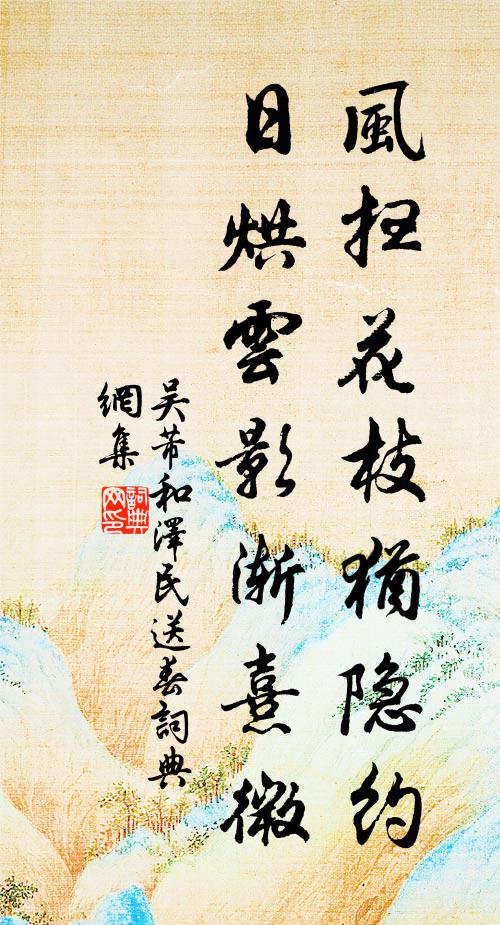 風扫花枝猶隐约
日烘雲影渐熹微
吴芾和澤民送春詞典
網集
詞典
网印